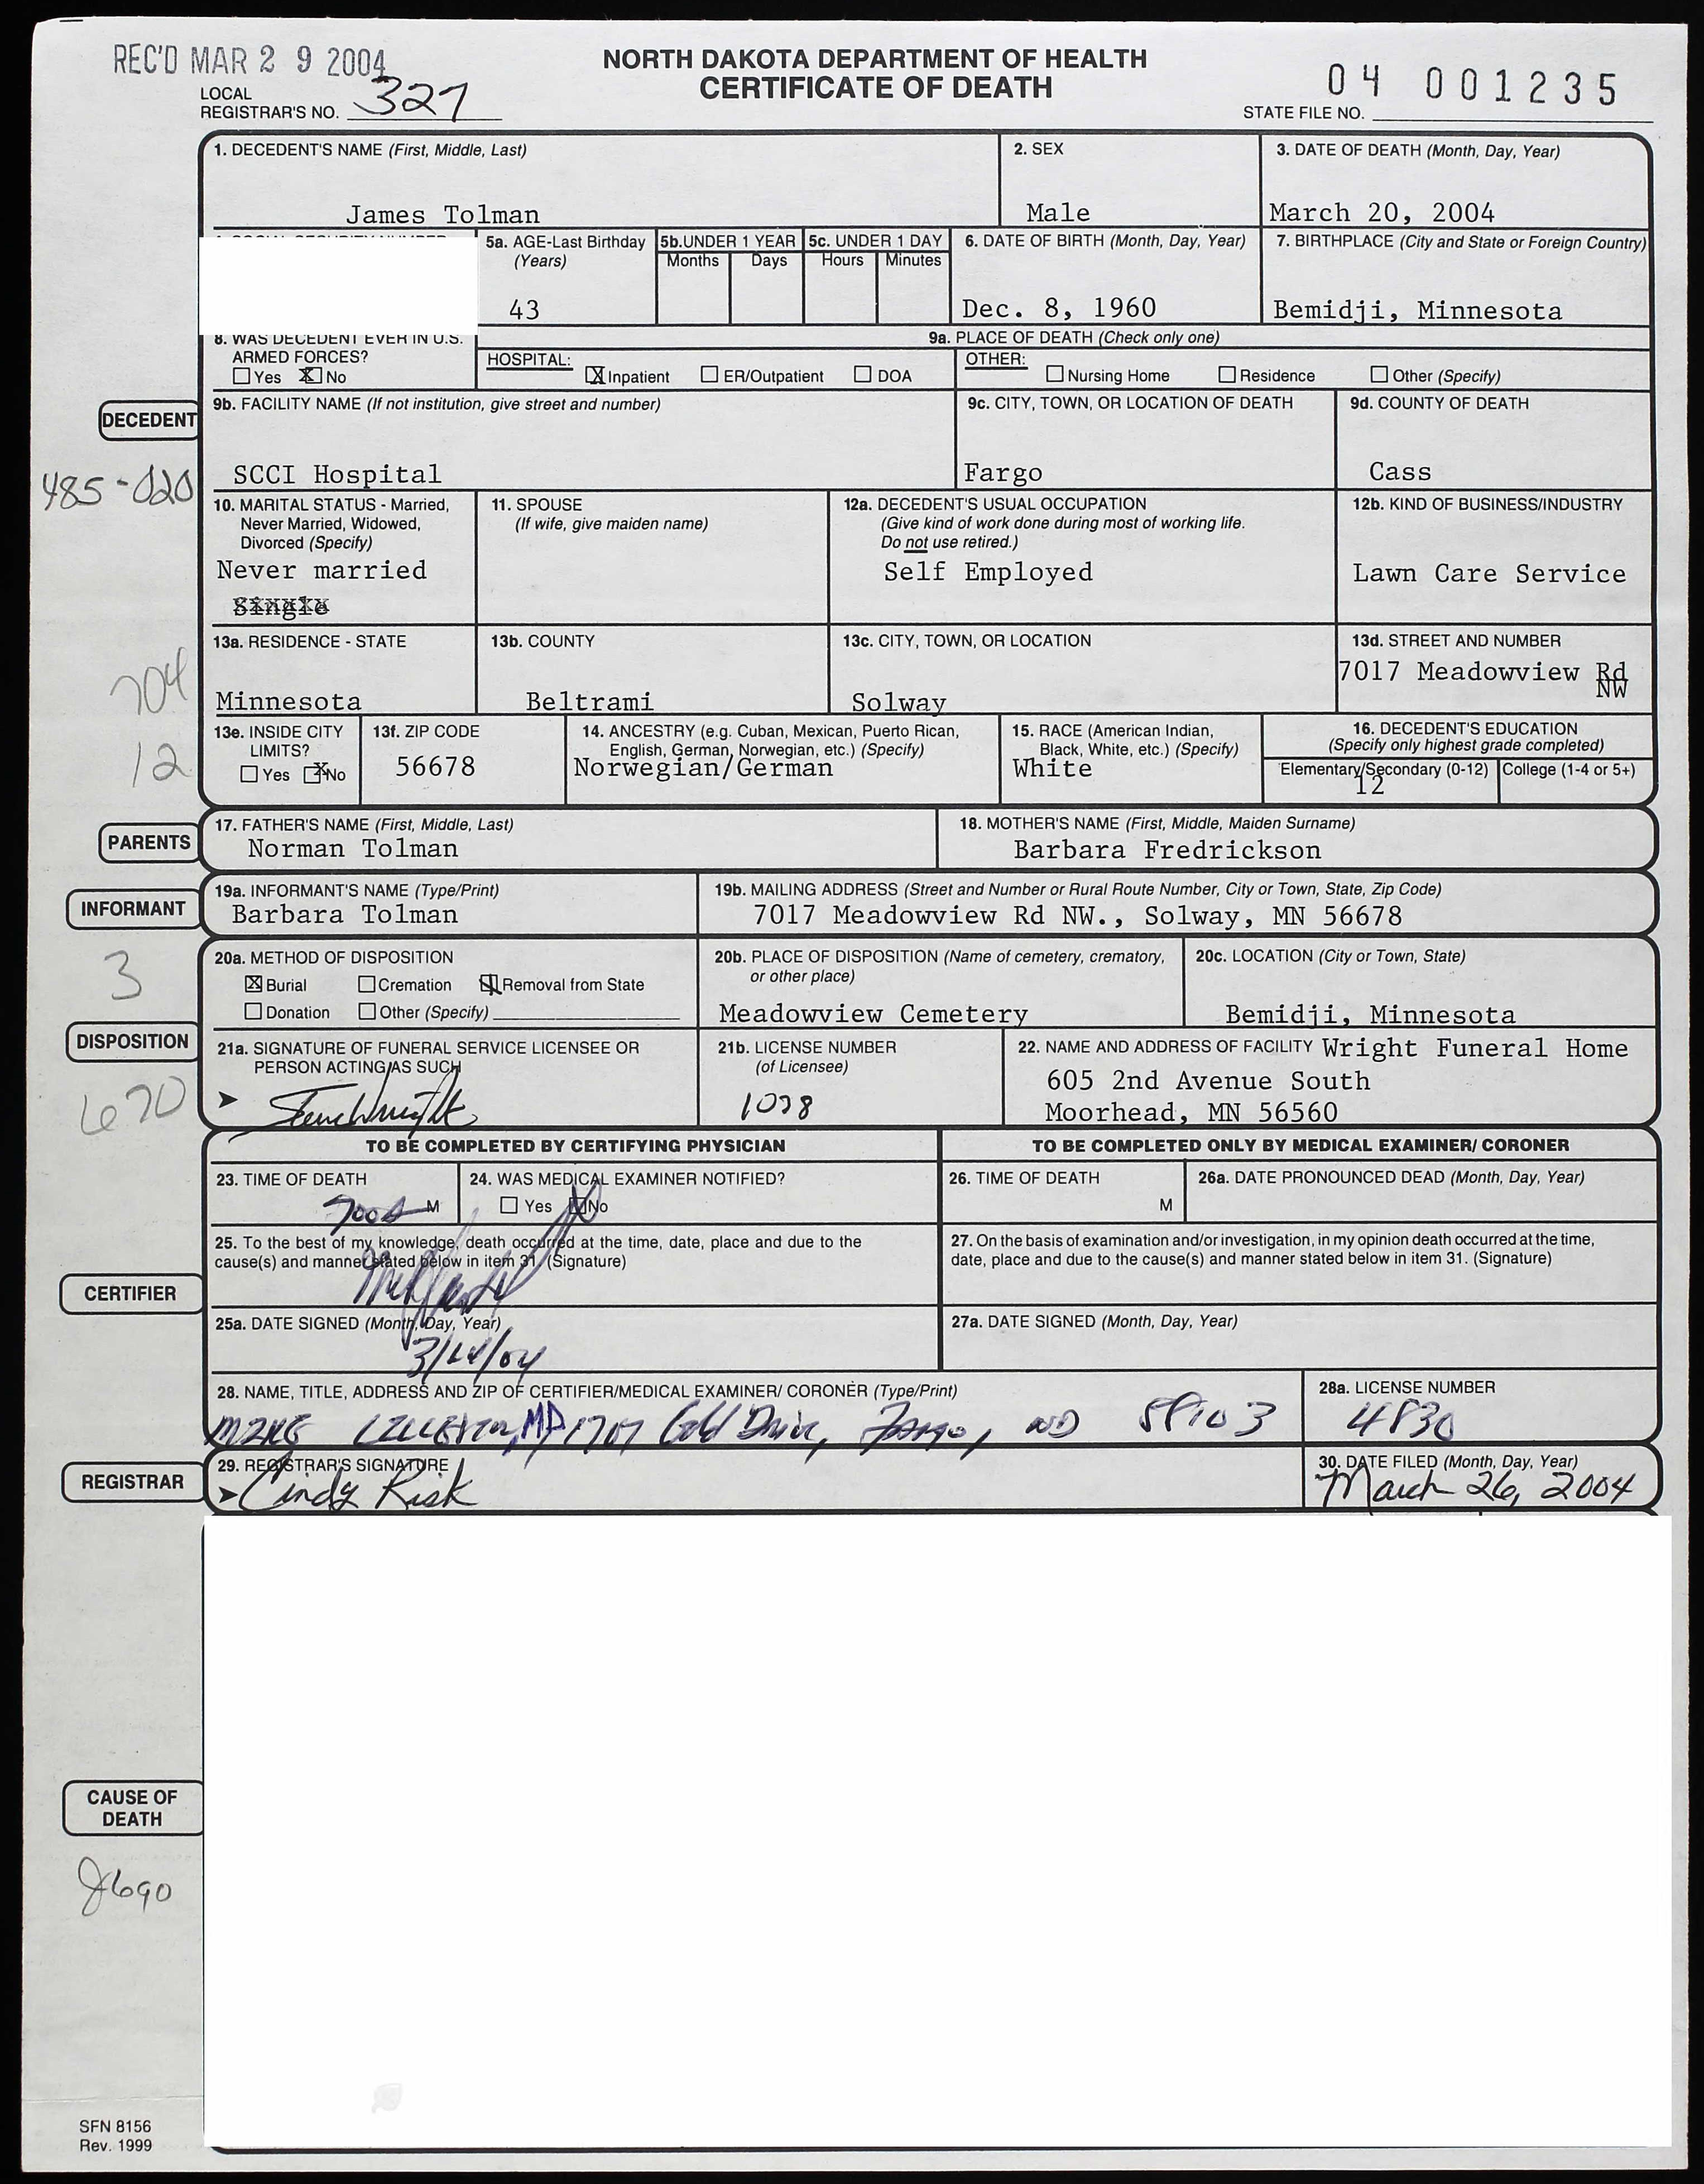 REC'D MAR 2 9 2004
NORTH DAKOTA DEPARTMENT OF HEALTH
CERTIFICATE OF DEATH
LOCAL
REGISTRAR'S NO. 327
04 001235
STATE FILE NO.
1. DECEDENT'S NAME (First, Middle, Last)
James Tolman
2. SEX
Male
3. DATE OF DEATH (Month, Day, Year)
March 20, 2004
5a. AGE-Last Birthday
(Years)
43
5b. UNDER 1 YEAR
Months Days
5c. UNDER 1 DAY
Hours Minutes
6. DATE OF BIRTH (Month, Day, Year)
Dec. 8, 1960
7. BIRTHPLACE (City and State or Foreign Country)
Bemidji, Minnesota
8. WAS DECEDENT EVER IN U.S.
ARMED FORCES?
Yes X No
9a. PLACE OF DEATH (Check only one)
HOSPITAL:
X Inpatient ER/Outpatient DOA
OTHER:
Nursing Home Residence Other (Specify)
DECEDENT
485-020
9b. FACILITY NAME (If not institution, give street and number)
SCCI Hospital
9c. CITY, TOWN, OR LOCATION OF DEATH
Fargo
9d. COUNTY OF DEATH
Cass
10. MARITAL STATUS - Married,
Never Married, Widowed,
Divorced (Specify)
Never married
Single
11. SPOUSE
(If wife, give maiden name)
12a. DECEDENT'S USUAL OCCUPATION
(Give kind of work done during most of working life.
Do not use retired.)
Self Employed
12b. KIND OF BUSINESS/INDUSTRY
Lawn Care Service
704
13a. RESIDENCE - STATE
Minnesota
13b. COUNTY
Beltrami
13c. CITY, TOWN, OR LOCATION
Solway
13d. STREET AND NUMBER
7017 Meadowview Rd
NW
12
13e. INSIDE CITY
LIMITS?
Yes X No
13f. ZIP CODE
56678
14. ANCESTRY (e.g. Cuban, Mexican, Puerto Rican,
English, German, Norwegian, etc.) (Specify)
Norwegian/German
15. RACE (American Indian,
Black, White, etc.) (Specify)
White
16. DECEDENT'S EDUCATION
(Specify only highest grade completed)
Elementary/Secondary (0-12) College (1-4 or 5+)
12
PARENTS
17. FATHER'S NAME (First, Middle, Last)
Norman Tolman
18. MOTHER'S NAME (First, Middle, Maiden Surname)
Barbara Fredrickson
INFORMANT
19a. INFORMANT'S NAME (Type/Print)
Barbara Tolman
19b. MAILING ADDRESS (Street and Number or Rural Route Number, City or Town, State, Zip Code)
7017 Meadowview Rd NW., Solway, MN 56678
3
20a. METHOD OF DISPOSITION
X Burial Cremation Removal from State
Donation Other (Specify)
20b. PLACE OF DISPOSITION (Name of cemetery, crematory,
or other place)
Meadowview Cemetery
20c. LOCATION (City or Town, State)
Bemidji, Minnesota
DISPOSITION
670
21a. SIGNATURE OF FUNERAL SERVICE LICENSEE OR
PERSON ACTING AS SUCH
Steve Wright
21b. LICENSE NUMBER
(of Licensee)
22. NAME AND ADDRESS OF FACILITY Wright Funeral Home
605 2nd Avenue South
Moorhead, MN 56560
TO BE COMPLETED BY CERTIFYING PHYSICIAN
TO BE COMPLETED ONLY BY MEDICAL EXAMINER/ CORONER
23. TIME OF DEATH
M
24. WAS MEDICAL EXAMINER NOTIFIED?
Yes No
26. TIME OF DEATH
M
26a. DATE PRONOUNCED DEAD (Month, Day, Year)
25. To the best of my knowledge, death occurred at the time, date, place and due to the
cause(s) and manner stated below in item 31. (Signature)
27. On the basis of examination and/or investigation, in my opinion death occurred at the time,
date, place and due to the cause(s) and manner stated below in item 31. (Signature)
CERTIFIER
25a. DATE SIGNED (Month, Day, Year)
27a. DATE SIGNED (Month, Day, Year)
28. NAME, TITLE, ADDRESS AND ZIP OF CERTIFIER/MEDICAL EXAMINER/ CORONER (Type/Print)
MD 1707 Gold Drive, Fargo, ND 58103
28a. LICENSE NUMBER
4830
REGISTRAR
29. REGISTRAR'S SIGNATURE
Cindy Risk
30. DATE FILED (Month, Day, Year)
March 26, 2004
CAUSE OF
DEATH
SFN 8156
Rev. 1999